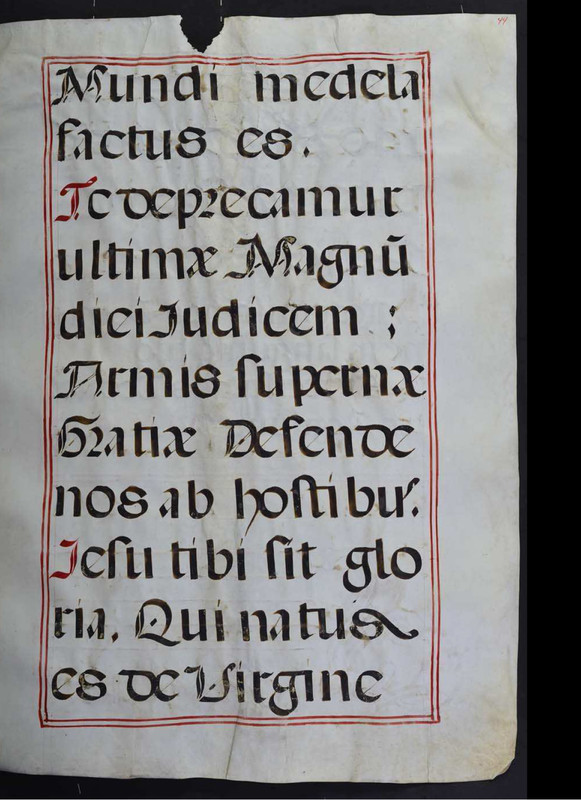 44
Mundi medela
factus es.
Te deprecamur
ultimæ Magnū
diei Iudicem ;
Armis ſupernæ
Gratiæ Defende
nos ab hoſtibus.
Ieſu tibi ſit glo
ria. Qui natus
es de Virgine